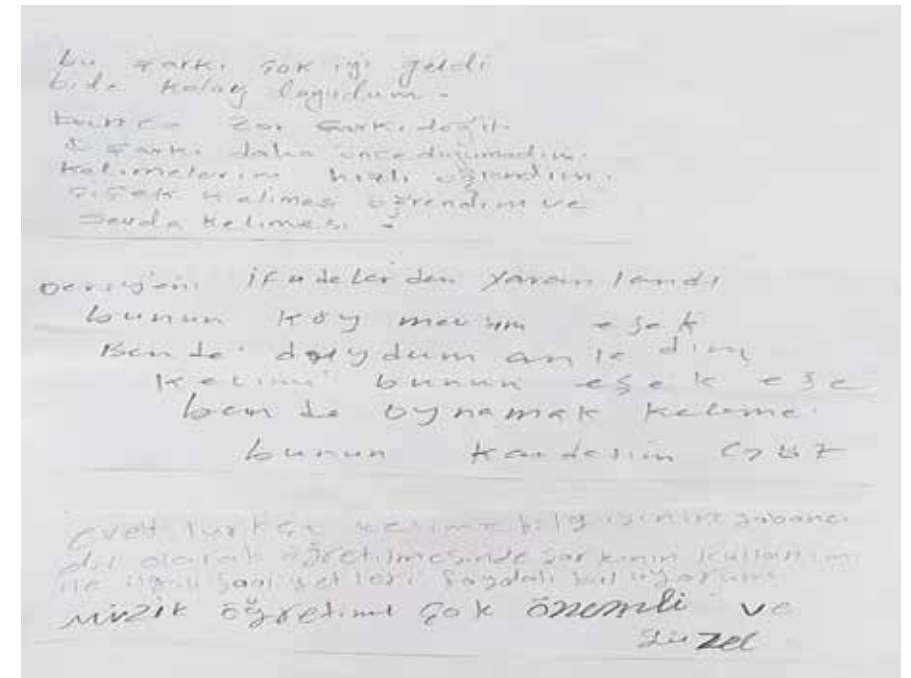 bu şarkı çok iyi geldi
bide kolay
zor şarkı değil
şarkı daha önce duyumadım.
kelimelerini hızlı öğrendim.
çiçek kelimesi öğrendim ve
sevda kelimesi.
ifadelerden yararlandı
bunun köy mevsim eşek
Bende duydum anladım
kelimi bunun eşek eşe
bende oynamak kelime.
bunun kardeşim
Evet Türkçe kelime bilgisinin yabancı
dil olarak öğretilmesinde şarkının kullanımı
ile ilgili faaliyetleri faydalı buluyorum
müzik öğretimi çok önemli ve
güzel